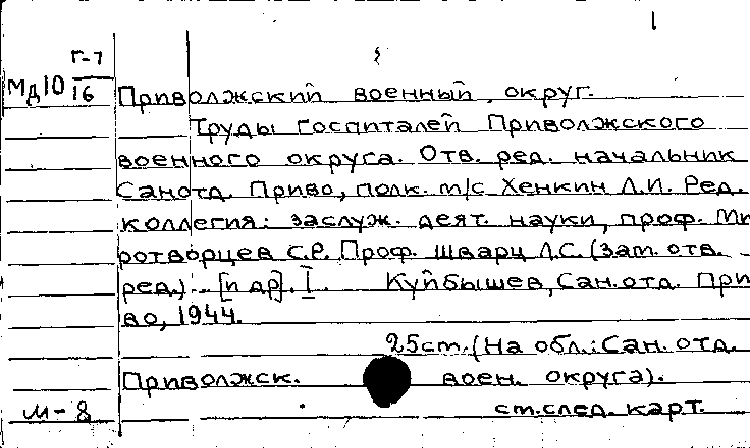 Г-7
Мд10 16
Приволжский военный округ.
Труды госпиталей Приволжского
военного округа. Отв. ред. начальник
Санотд. Приво, полк. м/с Хенкин Л.И. Ред.
коллегия: заслуж. деят. науки, проф. Ми
ротворцев С.Р. Проф. Шварц Л.С. (зам. отв.
ред.) - [и др]. I. Куйбышев, Сан. отд. При
во, 1944.
25см. (На обл.: Сан. отд.
Приволжск. воен. округа).
м-8 см. след. карт.